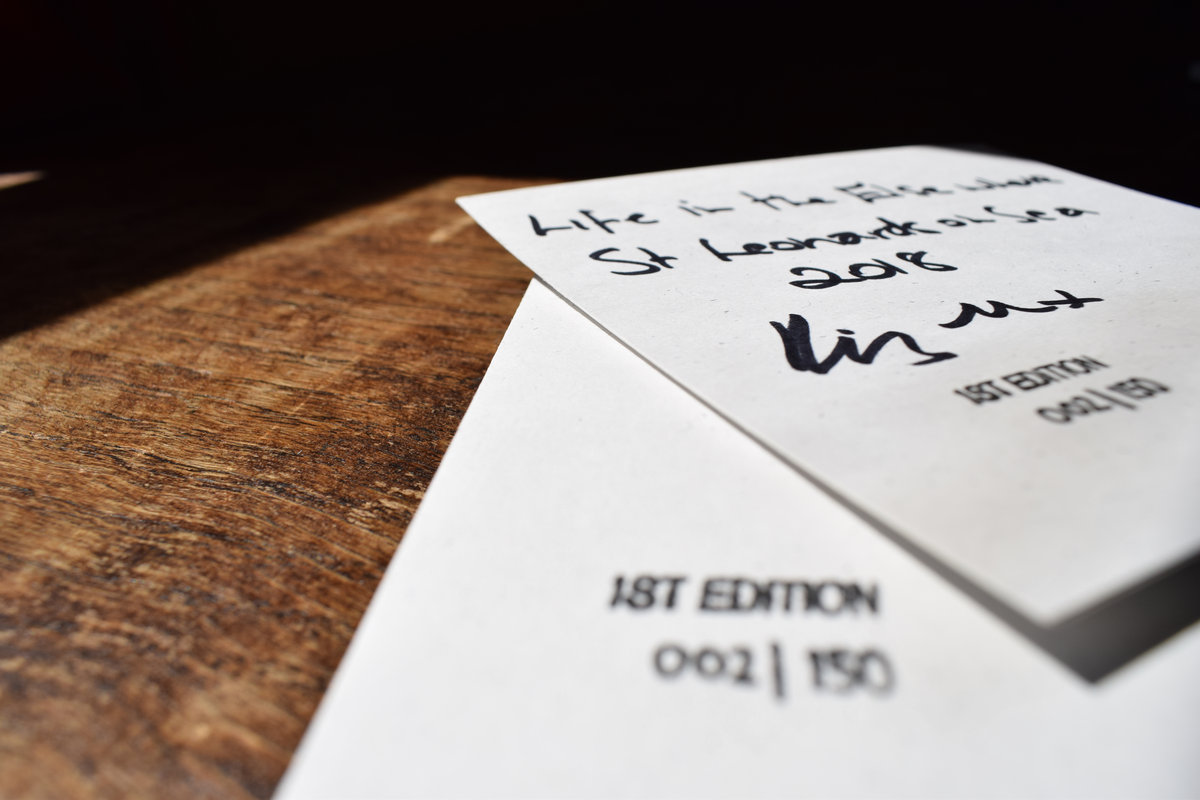 Life in the Else where
St Leonards on Sea
2018
1ST EDITION
002 | 150
1ST EDITION
002 | 150